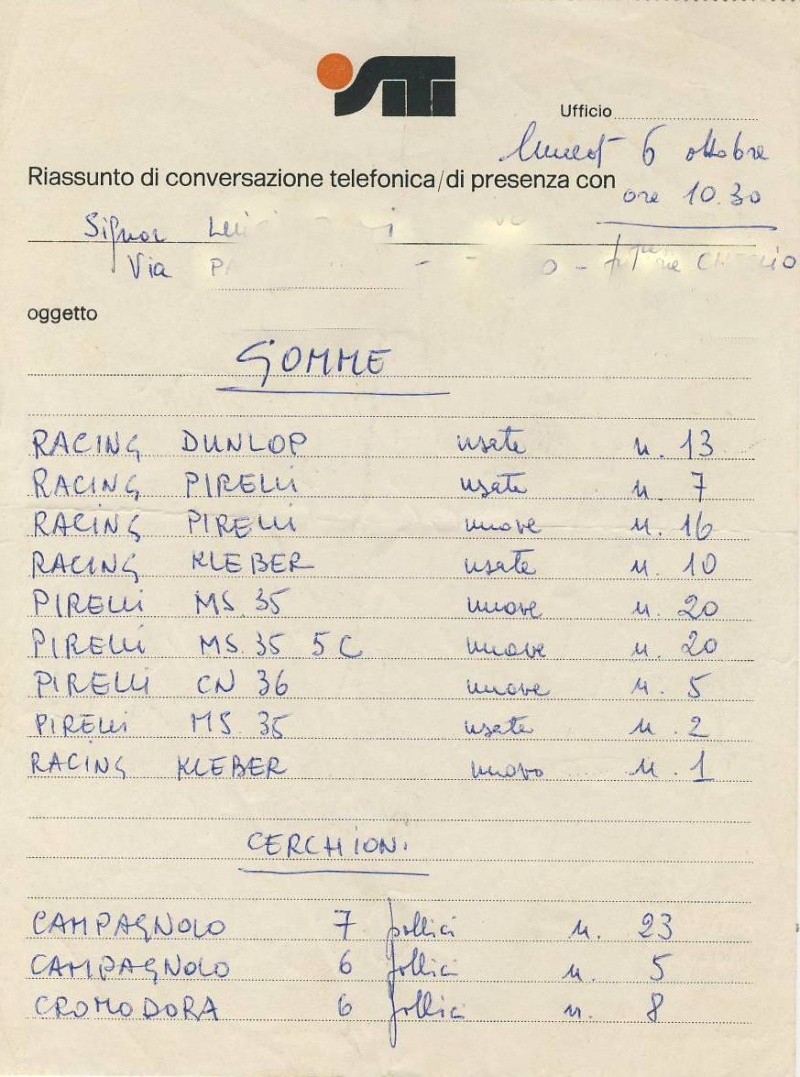 SITI
Ufficio
lunedì 6 ottobre
Riassunto di conversazione telefonica/di presenza con
ore 10.30
Signor
Via
oggetto
GOMME
RACING DUNLOP usate n. 13
RACING PIRELLI usate n. 7
RACING PIRELLI nuove n. 16
RACING KLEBER usate n. 10
PIRELLI MS. 35 nuove n. 20
PIRELLI MS. 35 5 C nuove n. 20
PIRELLI CN 36 nuove n. 5
PIRELLI MS 35 usate n. 2
RACING KLEBER nuovo n. 1
CERCHIONI
CAMPAGNOLO 7 pollici n. 23
CAMPAGNOLO 6 pollici n. 5
CROMODORA 6 pollici n. 8